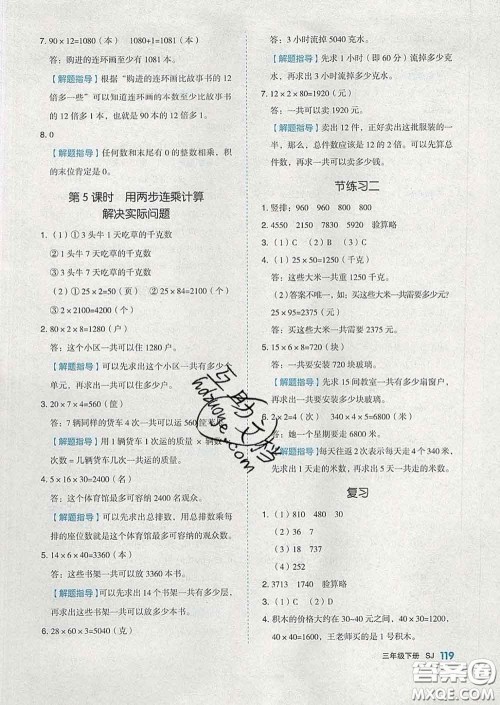 7. 90×12=1080(本)　1080+1=1081(本)
答：购进的连环画至少有 1081 本。
【解题指导】根据“购进的连环画比故事书的 12
倍多一些”可以知道连环画的本数至少比故事书
的 12 倍多 1 本，也就是 90 本的 12 倍多 1 本。
8. 0
【解题指导】任何数和末尾有 0 的整数相乘，积
的末位肯定是 0。
第 5 课时　用两步连乘计算
解决实际问题
1. (1)① 3 头牛 1 天吃草的千克数
② 3 头牛 7 天吃草的千克数
(2)① 25×2=50(页)　② 25×84=2100(个)
③ 2×2100=4200(个)
2. 80×2×8=1280(户)
答：这个小区一共可以住 1280 户。
【解题指导】可以先求出这个小区一共有多少个
单元，再求出一共可以住多少户。
3. 20×7×4=560(筐)
答：7 辆同样的货车 4 次一共可以运 560 筐
【解题指导】用 1 辆货车 1 次运的筐数 × 辆
次数=几辆货车一共运的质量。
4. 5×16×30=2400(名)
答：这个体育馆最多可容纳 2400 名观众。
【解题指导】可以先求出总排数，用总排数乘每
排的座位数就是这个体育馆最多可容纳的观众数。
5. 14×6×40=3360(本)
答：这些书架一共可以放 3360 本书。
【解题指导】可以先求出这些书架一共有多少层，
再求出这些书架一共可以放多少本书。
6. 28×60×3=5040(克)
答：3 小时流掉 5040 克水。
【解题指导】先求 1 小时(即 60 分)流掉多少克
水，再求出 3 小时流掉多少克水。
7. 12×2×80=1920(元)
答：一共可以卖 1920 元。
【解题指导】卖出 12 件，正好卖出这批服装的一
半，那么，总件数应该是 12 件的 2 倍，知道总件
数，再求出一共可以卖多少钱。
节练习二
1. 竖排：960　960　900　800
2. 4550　2150　7830　5930　验算略
3. (1)C　(2)D　(3)B
4. (1)25×50=1250(千克)
答：这些大米一共重 1250 千克。
(2)答案不唯一，如：买这些大米一共需要多少元?
25×95=2375(元)
答：买这些大米一共需要 2375 元。
5. 15×6×8=720(块)
答：一共要安装 720 块玻璃。
【解题指导】先求 15 间教室一共有多少扇窗户，
再求出一共要安装多少块玻璃。
6. 2×2=4(次)　340×4×5=6800(米)
答：她一个星期要走 6800 米。
【解题指导】每天往返 2 次表示每天走 4 个 340
米，先求出 1 天走的米数，再求出 5 天一共走的米数。
复习
1. (1)810　480　30
(2)18　(3)717
(4)36
2. 3713　1740　验算略
3. (1)C　(2)A
4. 积木的价格大约在 30~40 元之间，40×30=1200，
40×40=1600，王老师买的是 1 号积木。
三年级下册　SJ　119
互助文档
hdzuoye.com
答案圈
MXQE.COM